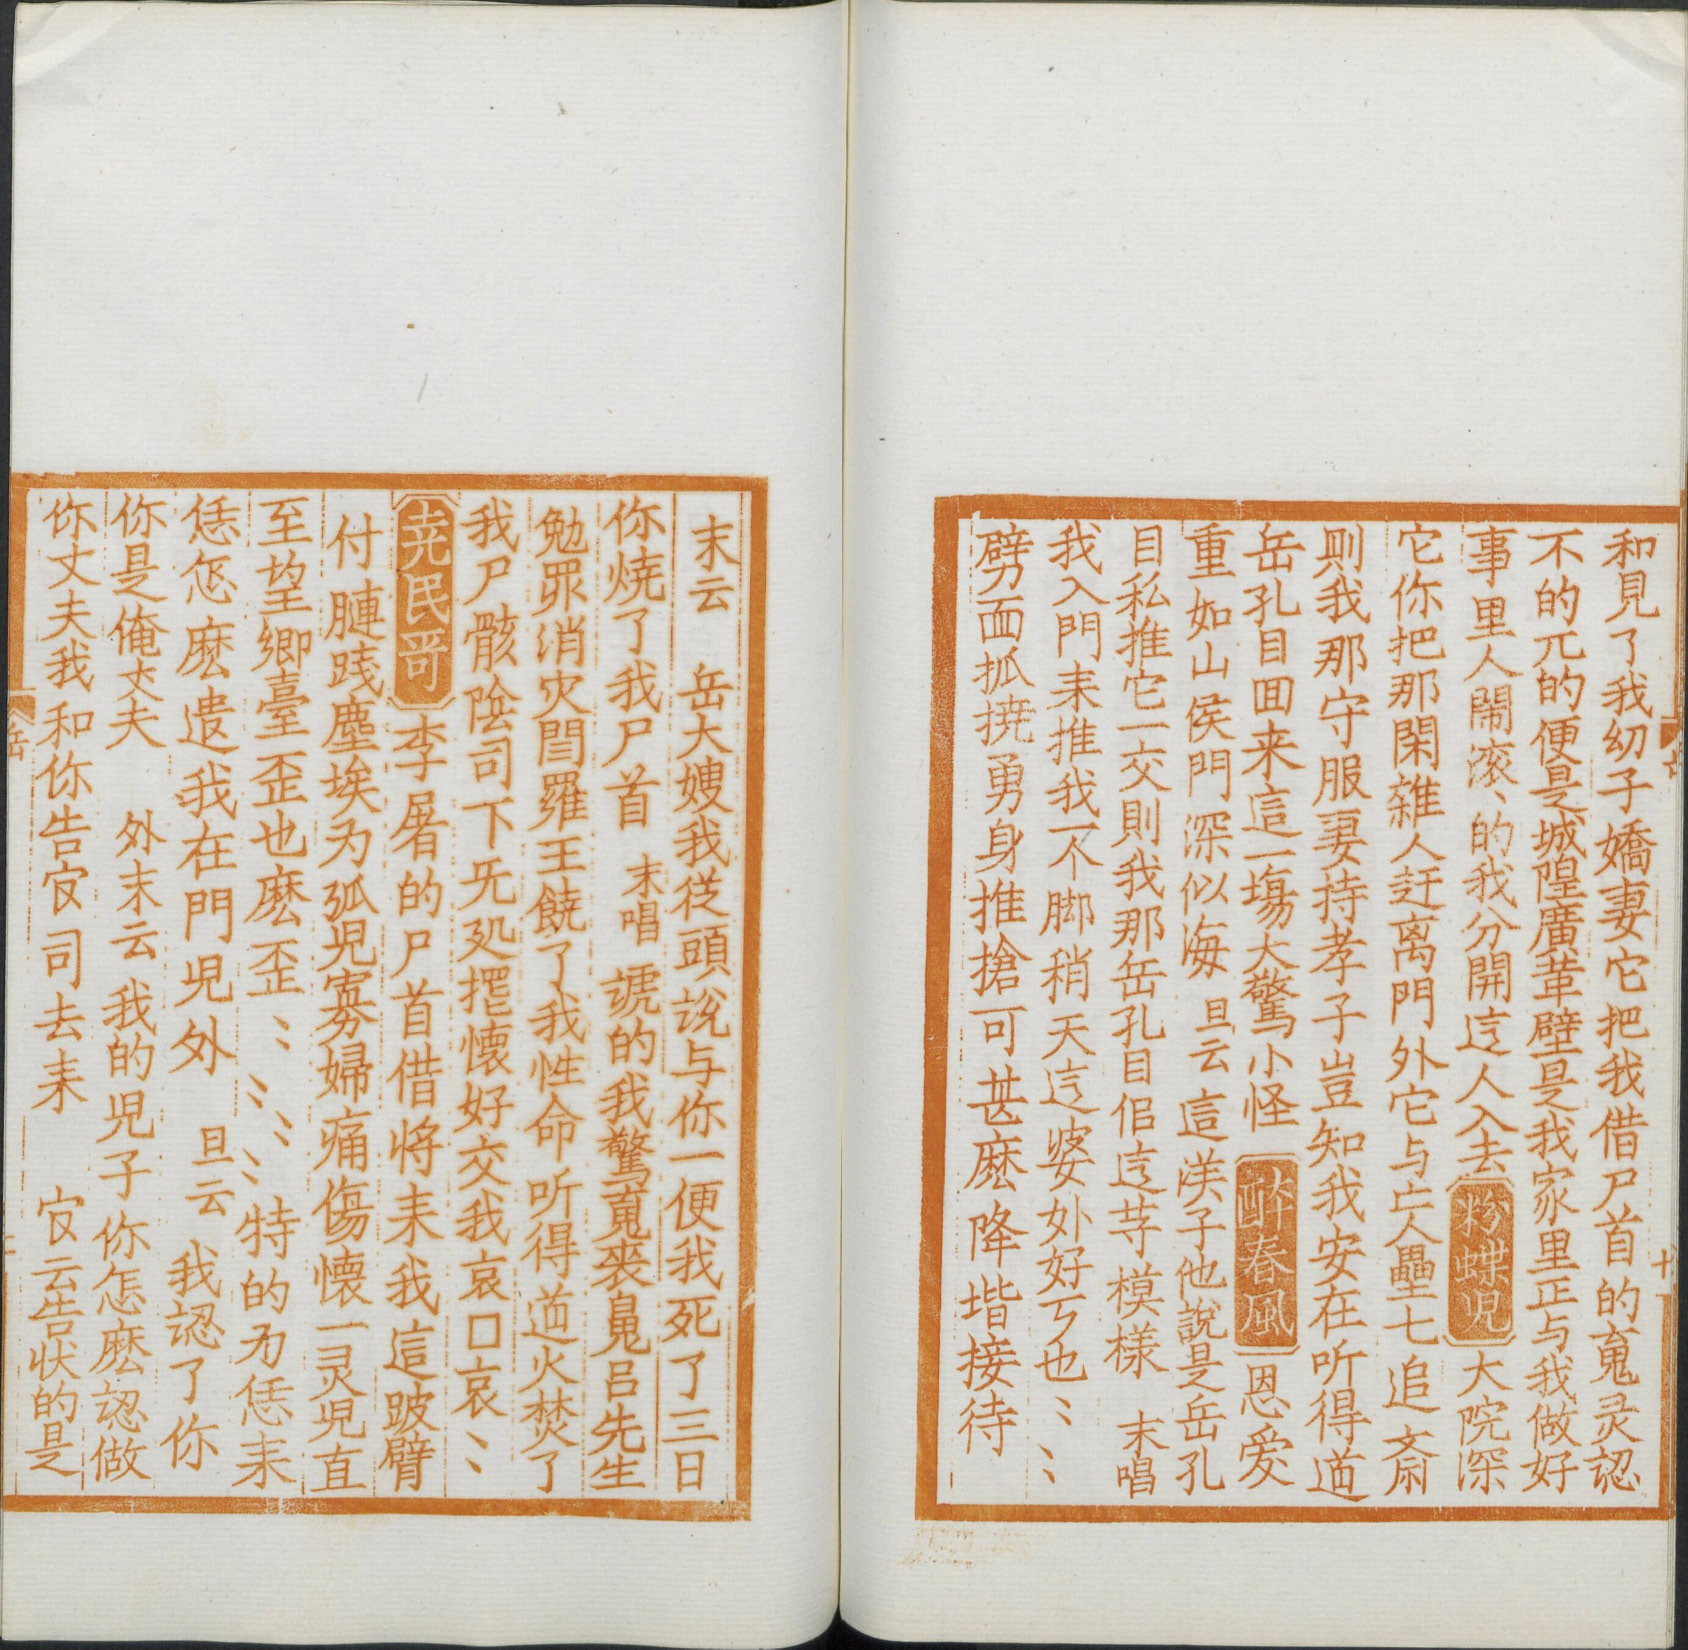 和見了我幼子嬌妻它把我借尸首的䰟灵認
不的兀的便是城隍廣革壁是我家里正与我做好
事里人鬧滚〻的我分開这人入去 粉蝶児 大院深
它你把那閑雜人赶离門外它与亡人壘七追斎
则我那守服妻持孝子豈知我安在听得道
岳孔目回来這一塲大驚小怪 酔春風 恩爱
重如山侯門深似海 旦云 這汉子他說是岳孔
目私推它一交則我那岳孔目侣这䓁模様 末唱
我入門耒推我一不脚稍天这婆外好歹也〻〻〻
劈面抓撓勇身推搶可甚麽降堦接待
末云 岳大嫂我従頭說与你一便我死了三日
你焼了我尸首 末唱 諕的我驚䰟喪胆呂先生
勉罪消灾閻羅王饒了我性命听得道火焚了
我尸骸陰司下旡処擺懐好交我哀口哀〻
尭民哥 李屠的尸首借将耒我這跛臂
付腫践塵埃为孤児寡婦痛傷懐一灵児直
至望鄉臺歪也麽歪〻〻〻〻特的为恁耒
恁怎麽遗我在門児外 旦云 我認了你
你是俺丈夫 外末云 我的児子你怎麽認做
你丈夫我和你告官司去耒 官云告状的是
岳
十